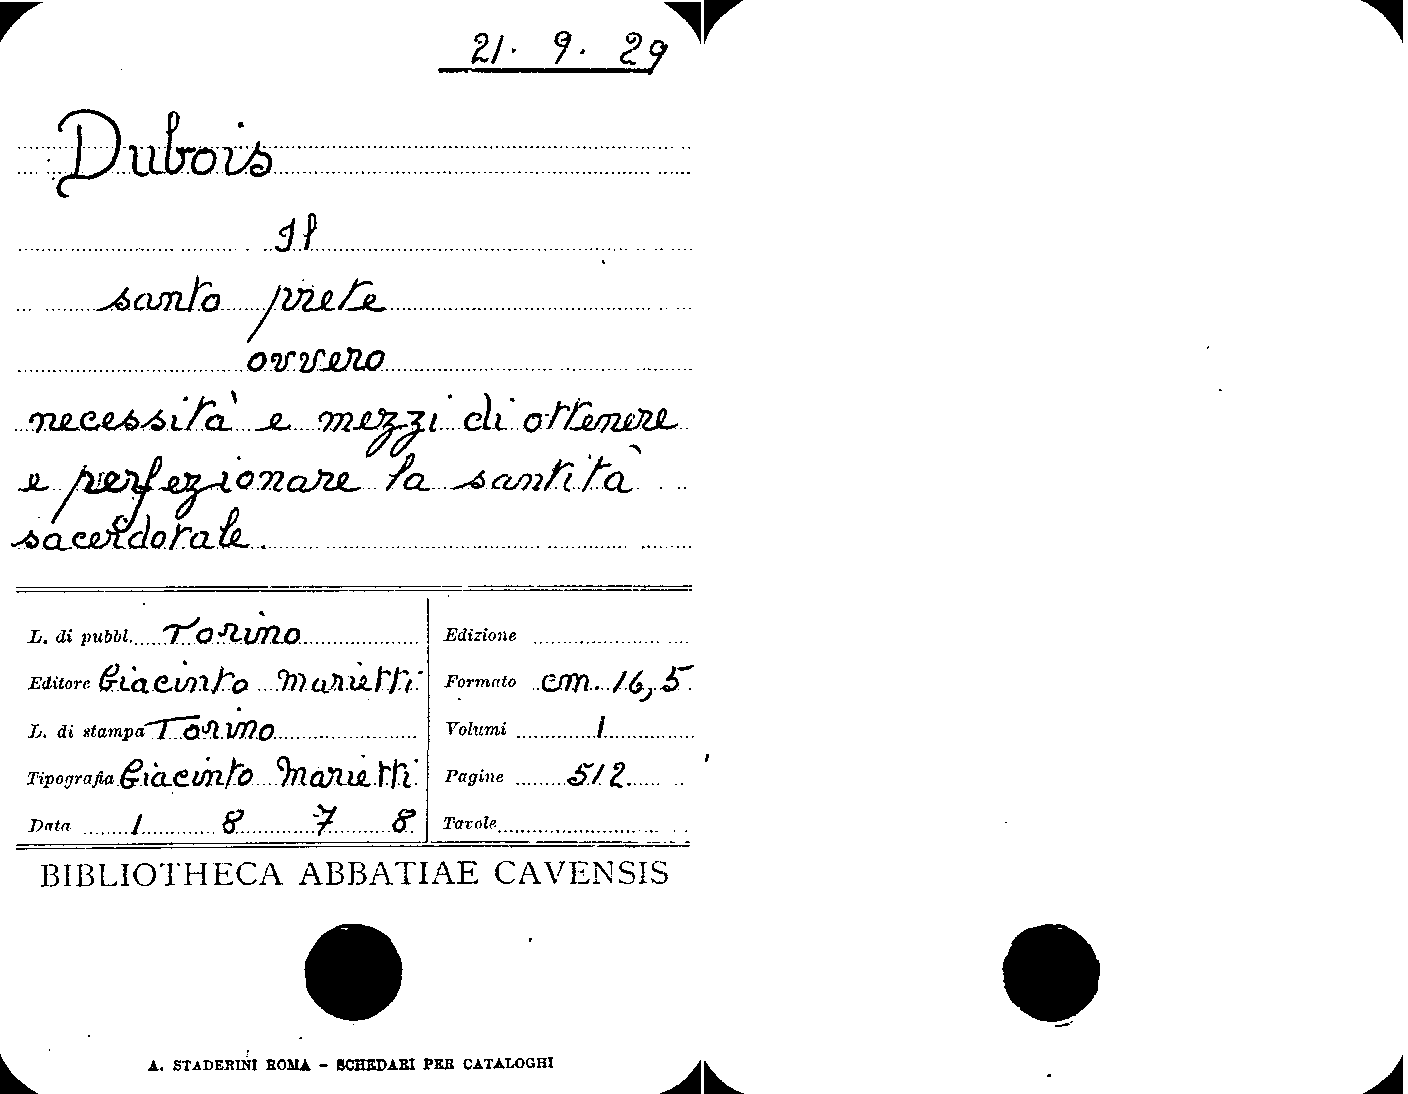 21. 9. 29
Dubois
Il
santo prete
ovvero
necessità e mezzi di ottenere
e perfezionare la santità
sacerdotale.
L. di pubbl. Torino
Editore Giacinto Marietti
L. di stampa Torino
Tipografia Giacinto Marietti
Data 1 8 7 8
Edizione
Formato cm. 16,5
Volumi 1
Pagine 512
Tavole
BIBLIOTHECA ABBATIAE CAVENSIS
A. STADERINI ROMA - SCHEDARI PER CATALOGHI